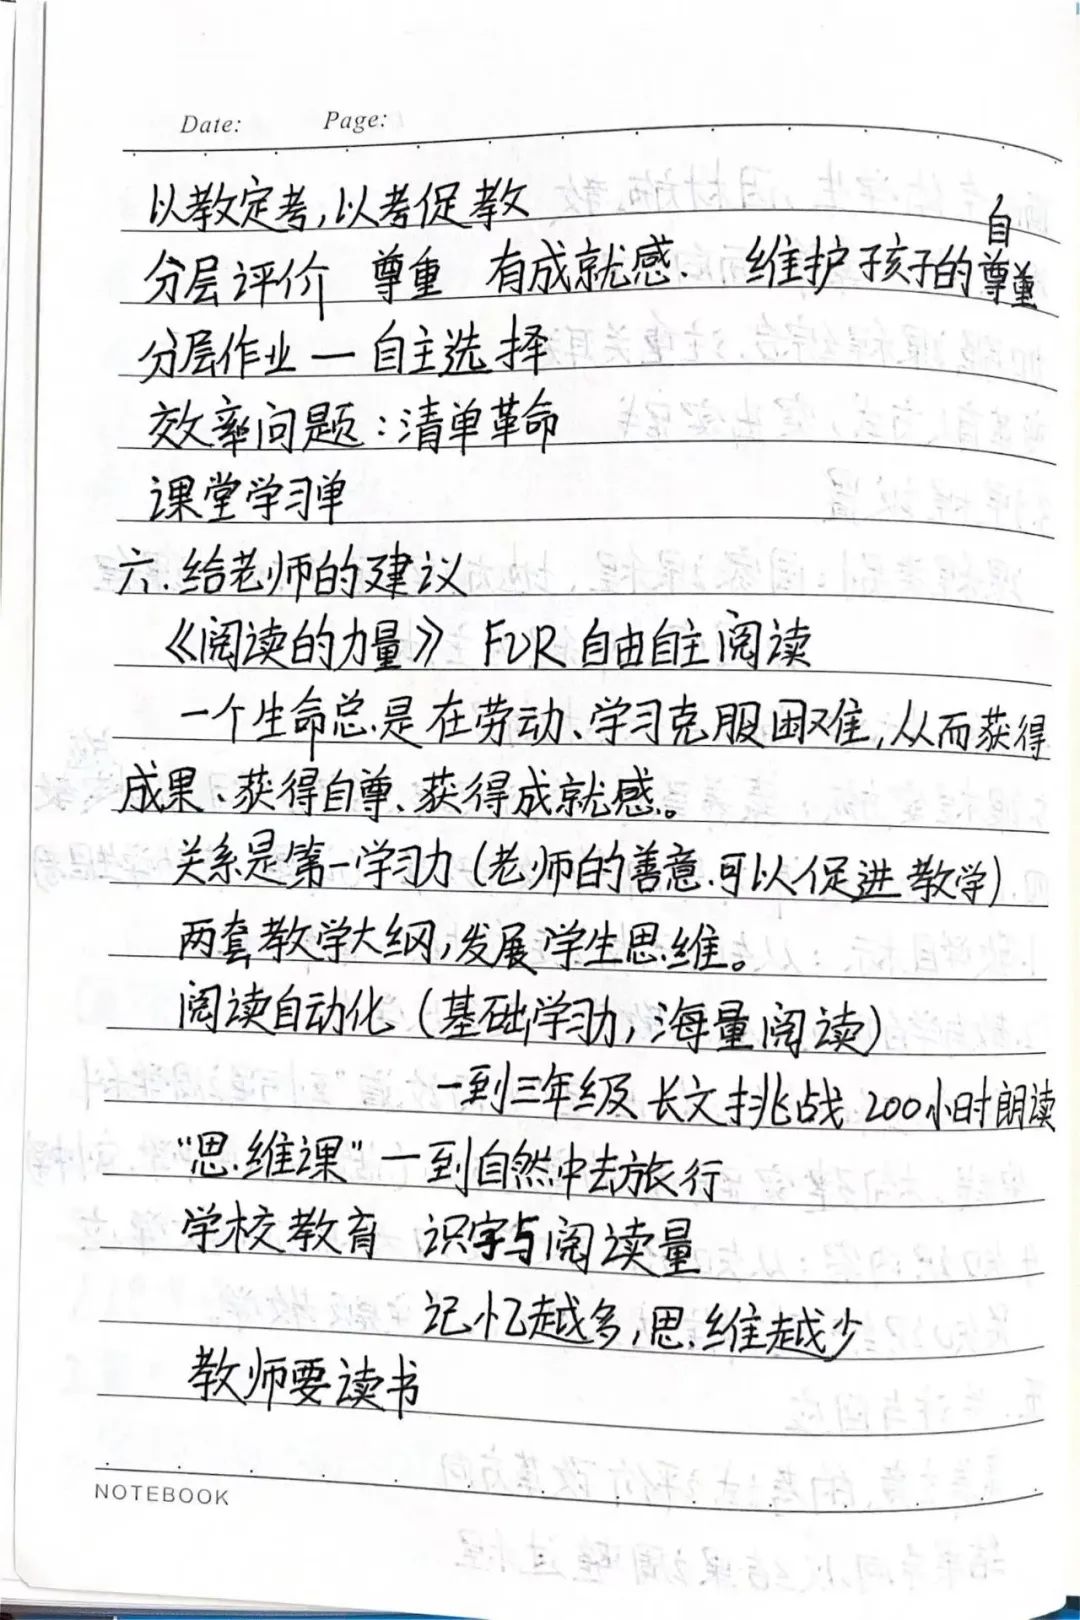 Date: Page:
以教定考,以考促教
分层评价 尊重 有成就感、 维护孩子的自尊
分层作业 — 自主选择
效率问题:清单革命
课堂学习单
六.给老师的建议
《阅读的力量》 FVR 自由自主阅读
一个生命总是在劳动、学习克服困难,从而获得
成果、获得自尊、获得成就感。
关系是第一学习力(老师的善意可以促进教学)
两套教学大纲,发展学生思维。
阅读自动化(基础学习力,海量阅读)
一到三年级 长文挑战 200小时朗读
"思维课"一到自然中去旅行
学校教育 识字与阅读量
记忆越多,思维越少
教师要读书
NOTEBOOK